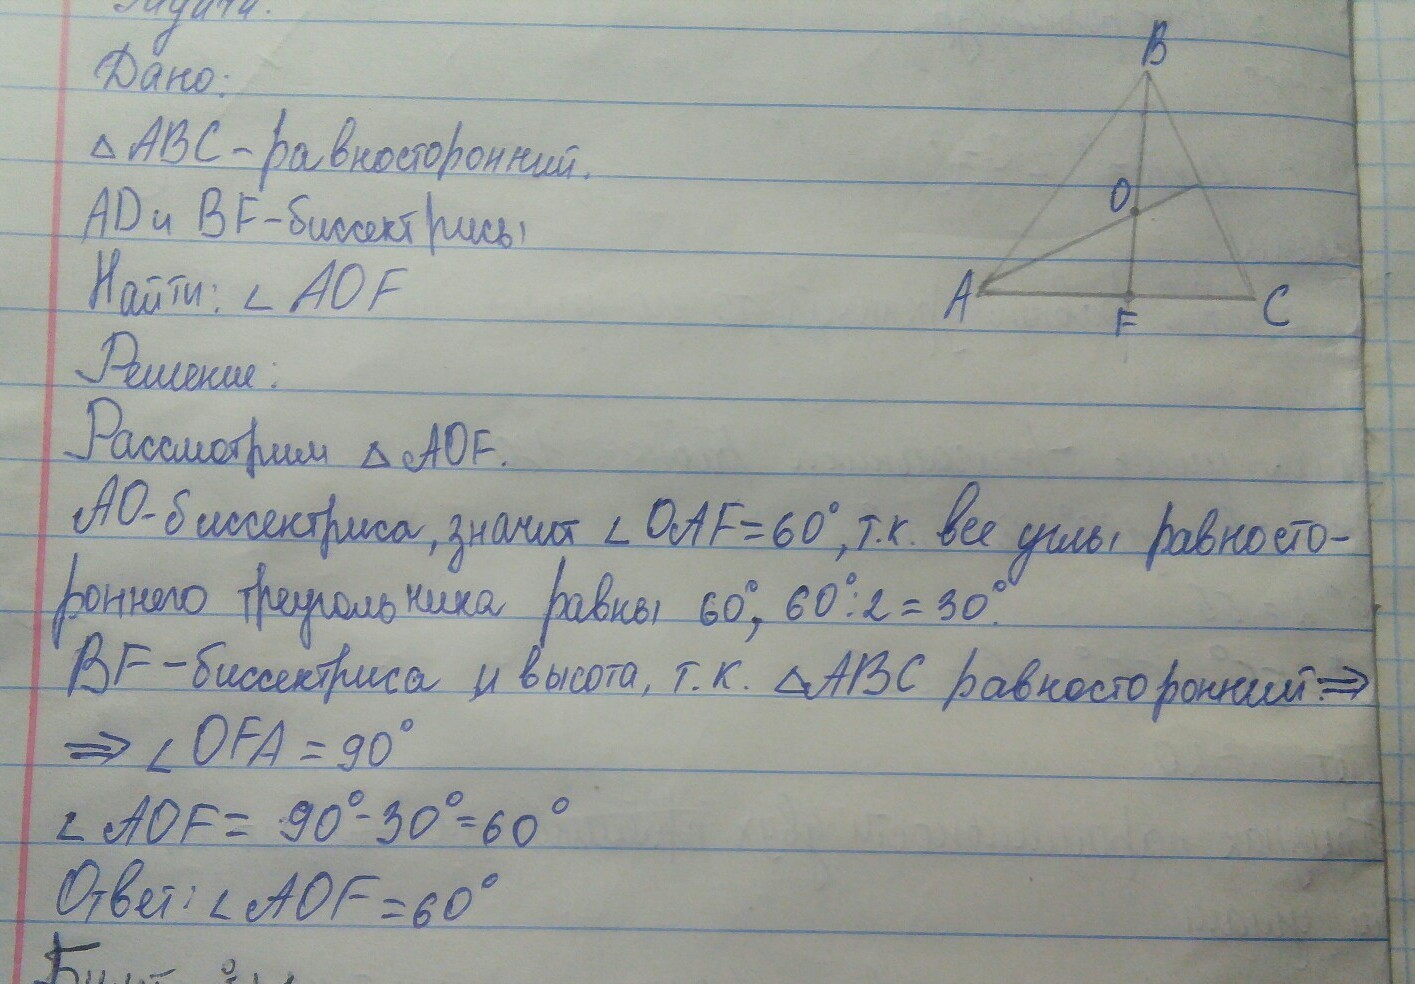 Задача.
Дано:
△ABC - равносторонний.
AD и BF - биссектрисы
Найти: ∠AOF
Решение:
Рассмотрим △AOF.
AO - биссектриса, значит ∠OAF = 60°, т.к. все углы равносто-
роннего треугольника равны 60°, 60°:2 = 30°.
BF - биссектриса и высота, т.к. △ABC равносторонний ⇒
⇒ ∠OFA = 90°
∠AOF = 90° - 30° = 60°
Ответ: ∠AOF = 60°
B
O
A
F
C